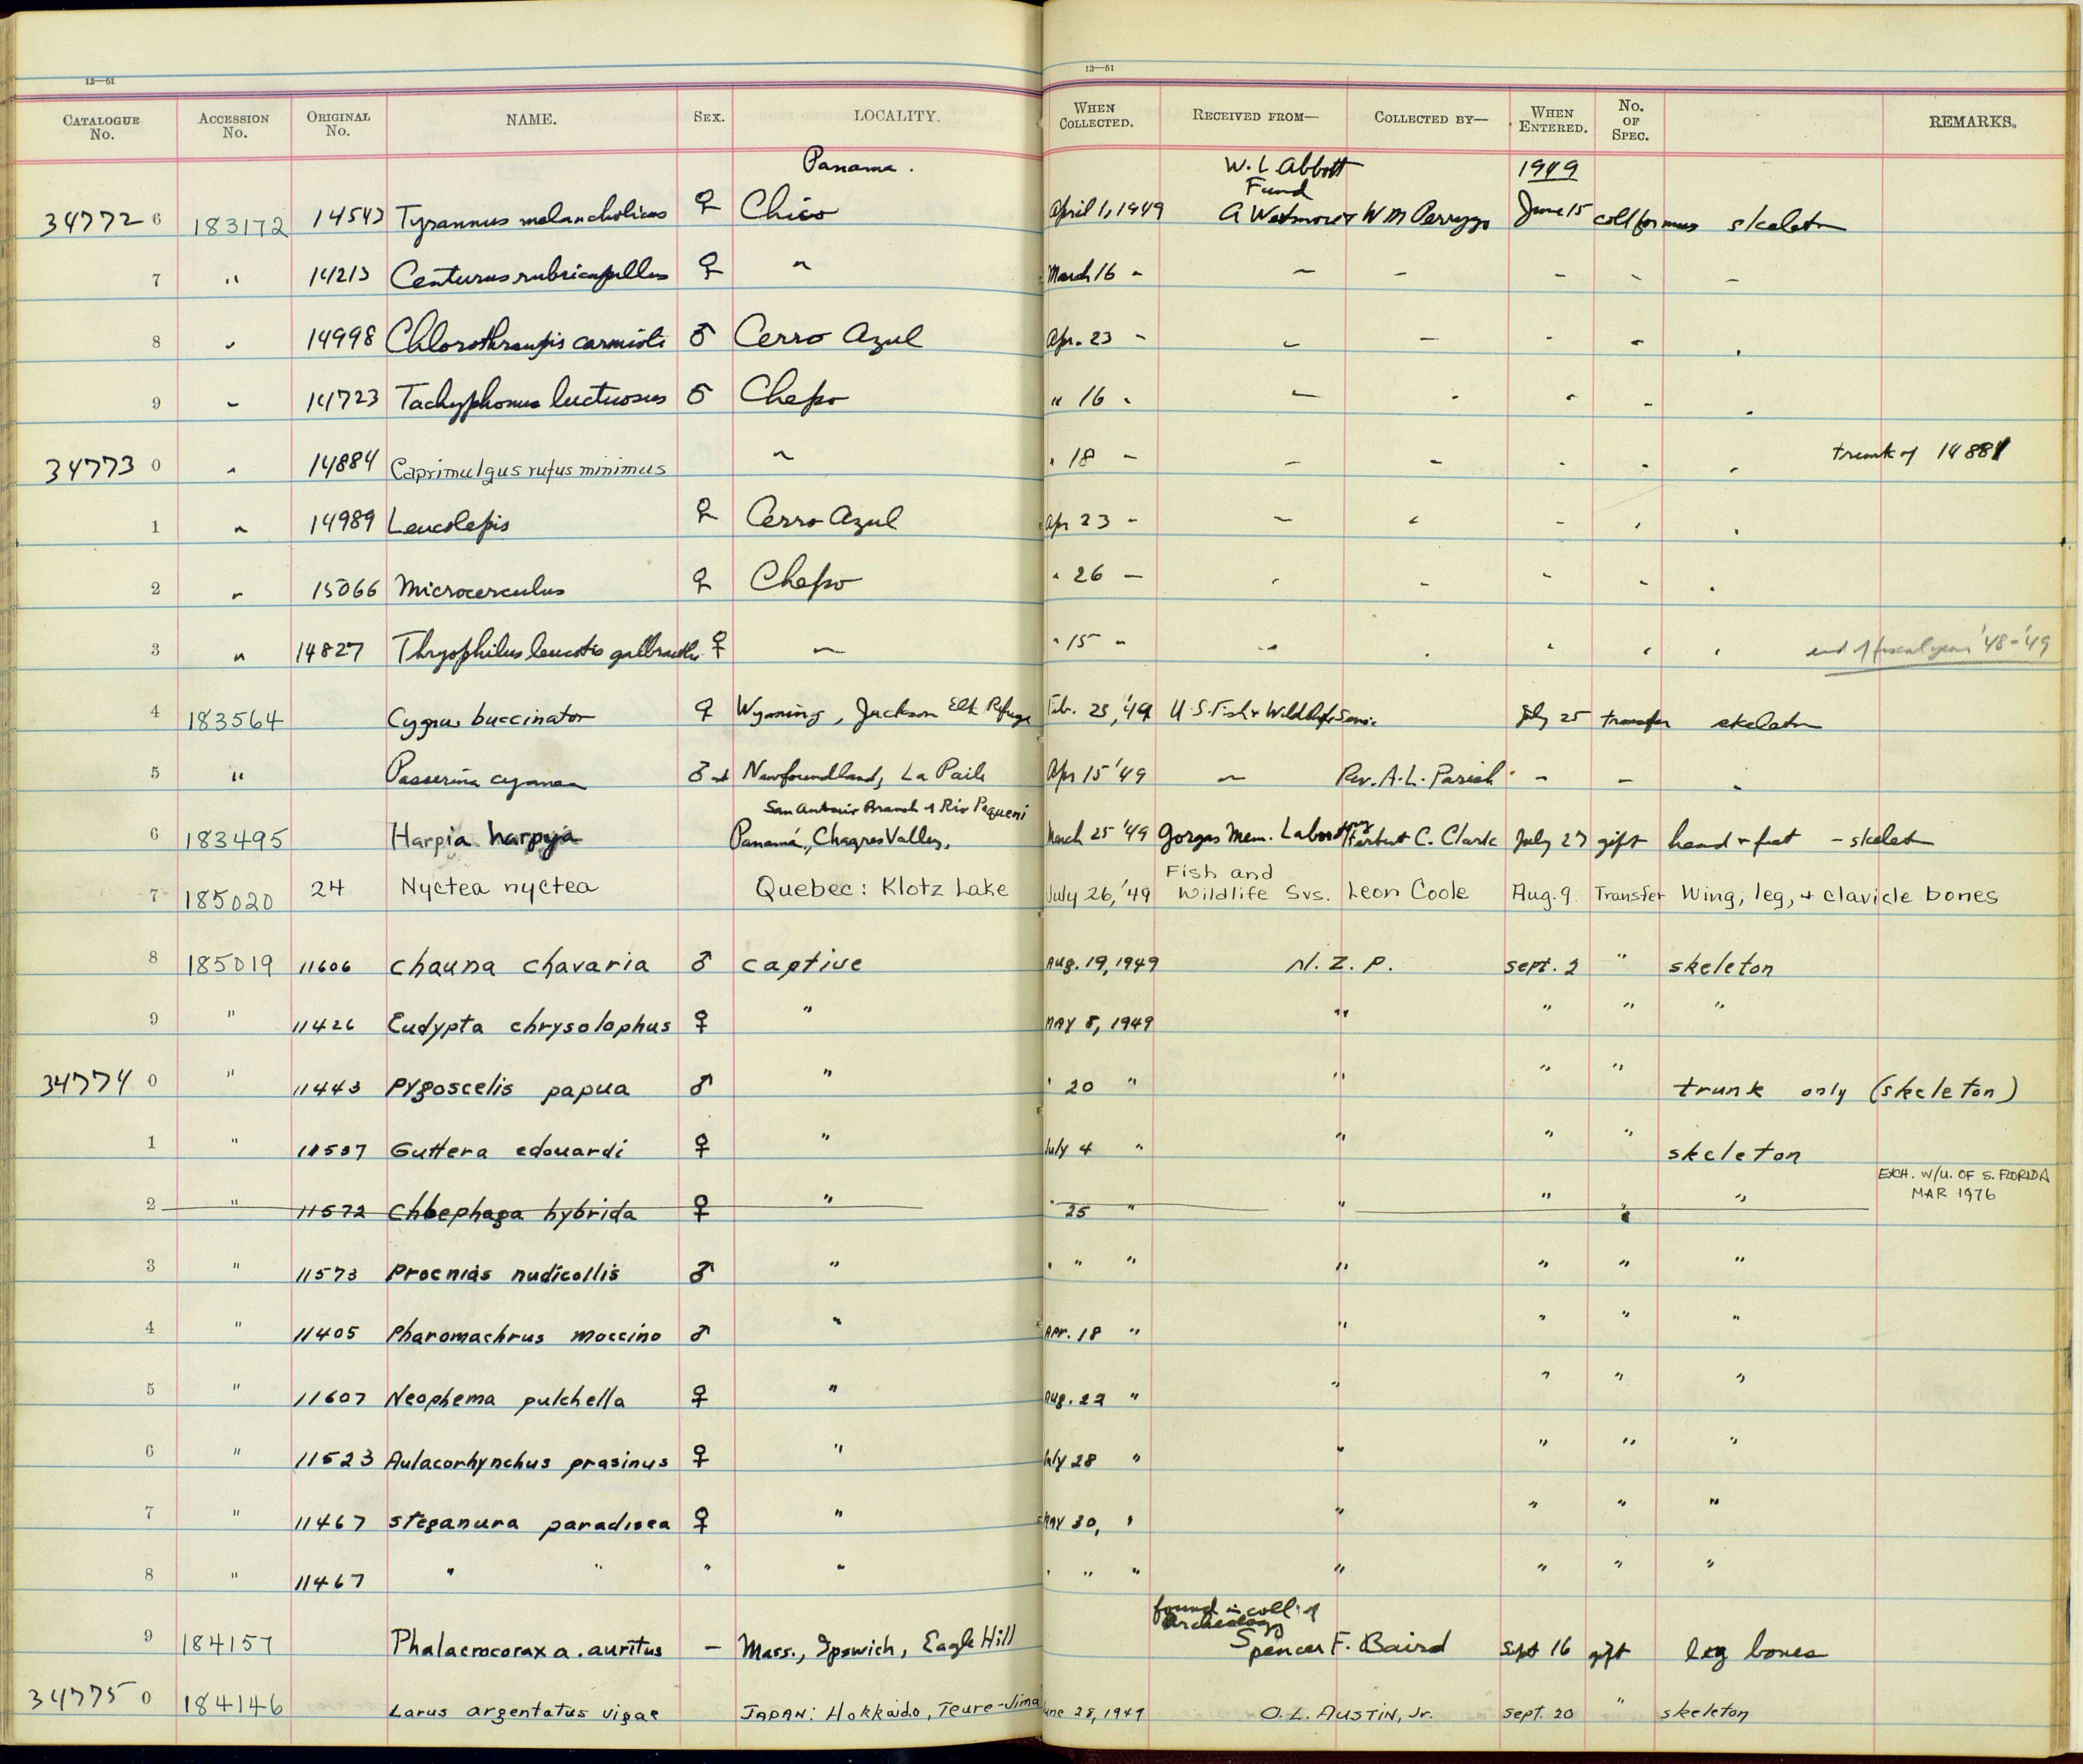 13—51
13—51
CATALOGUE No. ACCESSION No. ORIGINAL No. NAME. SEX. LOCALITY. WHEN COLLECTED. RECEIVED FROM— COLLECTED BY— WHEN ENTERED. No. OF SPEC. REMARKS.
Panama. W. L. Abbott Fund 1949
34772 6 183172 14543 Tyrannus melancholicus ♀ Chico April 1, 1949 A Wetmore & W M Perrygo June 15 coll for mus skeleton
7 " 14213 Centurus rubricapillus ♀ " March 16 " " " " " "
8 " 14998 Chlorothraupis carmioli ♂ Cerro Azul Apr. 23 " " " " " "
9 " 14723 Tachyphonus luctuosus ♂ Chepo " 16 " " " " " "
34773 0 " 14884 Caprimulgus rufus minimus " " 18 " " " " " " trunk of 14884
1 " 14989 Leucolepis ♀ Cerro Azul Apr 23 " " " " " "
2 " 15066 Microcerculus ♀ Chepo " 26 " " " " " "
3 " 14827 Thryophilus leucotis galbraithi ♀ " " 15 " " " " " " end of fiscal year '48-'49
4 183564 Cygnus buccinator ♀ Wyoming, Jackson Elk Refuge Feb. 23, '49 U.S. Fish & Wildlife Serv. July 25 transfer skeleton
5 " Passerina cyanea ♂ ad Newfoundland, La Poile Apr 15 '49 " Rev. A. L. Parish " " "
San Antonio Branch of Rio Pequeni
6 183495 Harpia harpyja Panamá, Chagres Valley, March 25 '49 Gorgas Mem. Laboratory Herbert C. Clark July 27 gift head & feet - skeleton
7 185020 24 Nyctea nyctea Quebec: Klotz Lake July 26, '49 Fish and Wildlife Svs. Leon Coole Aug. 9. Transfer Wing, leg, + clavicle bones
8 185019 11606 chauna chavaria ♂ captive Aug. 19, 1949 N. Z. P. Sept. 2 " skeleton
9 " 11426 Eudypta chrysolophus ♀ " May 8, 1949 " " " "
34774 0 " 11443 Pygoscelis papua ♂ " " 20 " " " " trunk only (skeleton)
1 " 11537 Guttera edouardi ♀ " July 4 " " " " skeleton
EXCH. W/U. OF S. FLORIDA MAR 1976
2 " 11572 Chloephaga hybrida ♀ " " 25 " " " " "
3 " 11573 Procnias nudicollis ♂ " " " " " " " "
4 " 11405 Pharomachrus moccino ♂ " Apr. 18 " " " " "
5 " 11607 Neophema pulchella ♀ " Aug. 22 " " " " "
6 " 11523 Aulacorhynchus prasinus ♀ " July 28 " " " " "
7 " 11467 Steganura paradisea ♀ " May 30, " " " " "
8 " 11467 " " " " " " " " " " "
found in coll. of Archeology
9 184157 Phalacrocorax a. auritus – Mass., Ipswich, Eagle Hill Spencer F. Baird Sept 16 gift leg bones
34775 0 184146 Larus argentatus vigae JAPAN: Hokkaido, Teure-Jima June 28, 1949 O. L. AUSTIN, Jr. Sept. 20 " skeleton